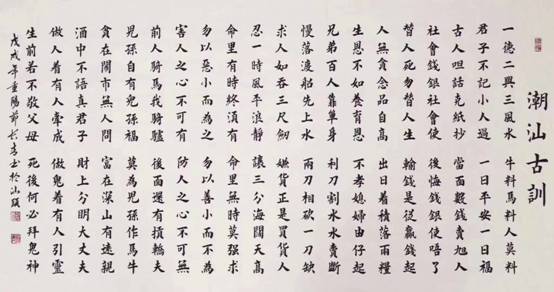 潮汕古訓
一德二興三風水 牛料馬料人莫料
君子不記小人過 一日平安一日福
古人咀話克紙抄 當面數錢賣人
社會錢銀社會使 後悔錢銀使唔了
替人死勿替人生 輸錢是從贏錢起
人無貪念品自高 出日着積落雨糧
生恩不如養育恩 不孝媳婦由仔起
兄弟百人靠單身 利刀割水水斷
慢落渡船先上水 兩刀相砍一刀缺
求人如吞三尺劍 嫌貨正是買貨人
忍一時風平浪靜 讓三分海闊天高
命里有時終須有 命里無時莫强求
勿以惡小而為之 勿以善小而不為
害人之心不可有 防人之心不可無
前人騎馬我騎驢 後面還有擔轎夫
兒孫自有兒孫福 莫為兒孫作馬牛
貧在鬧市無人問 富在深山有遠親
酒中不語真君子 財上分明大丈夫
做人着有人牽成 做鬼着有人引靈
生前若不敬父母 死後何必拜鬼神
戊戌年重陽節 書於汕頭